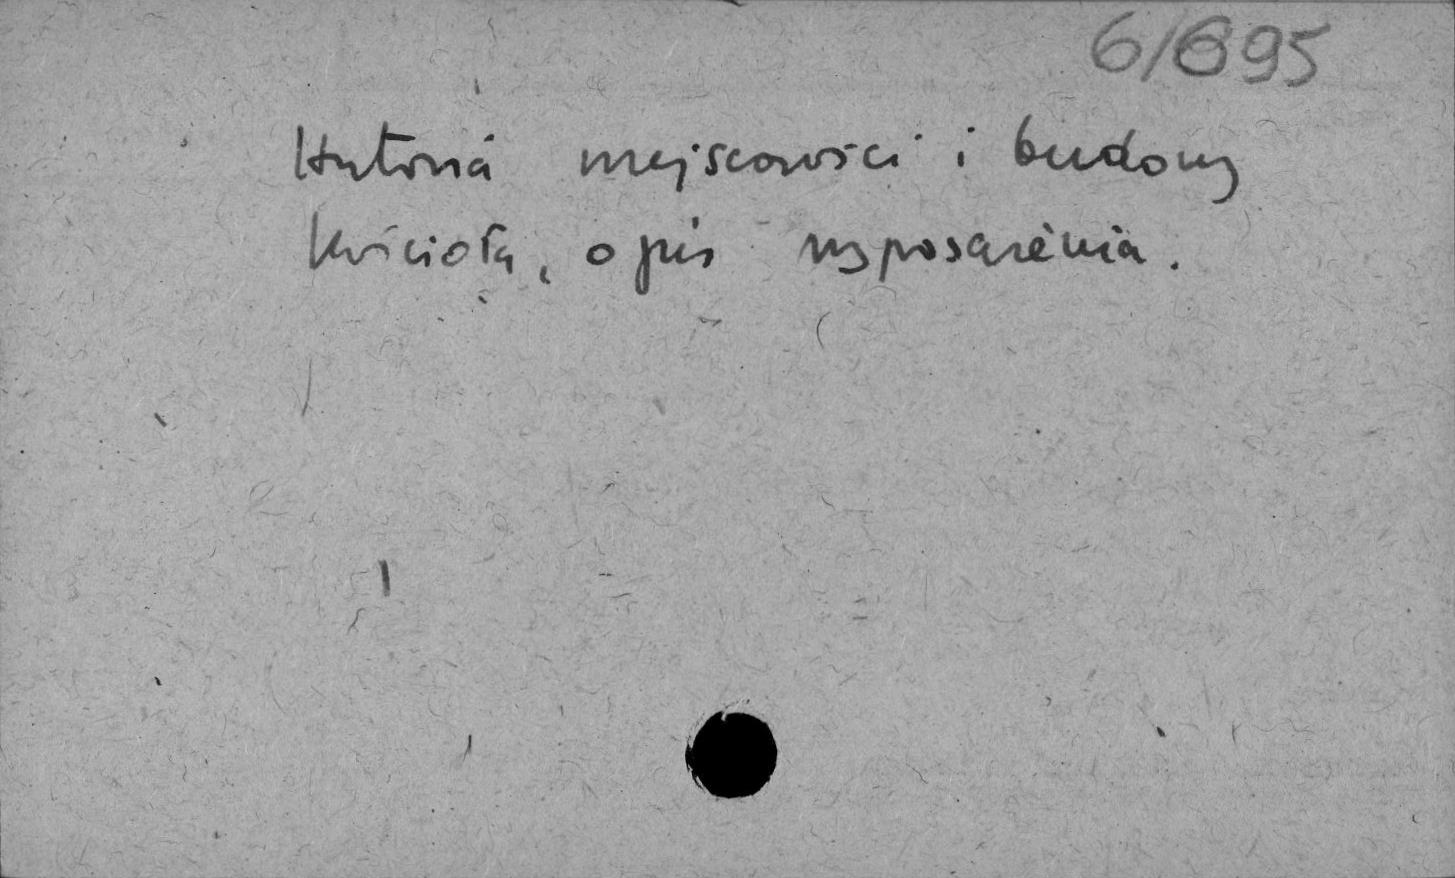 6/695
Historia miejscowości i budowy
kościoła, opis wyposażenia.